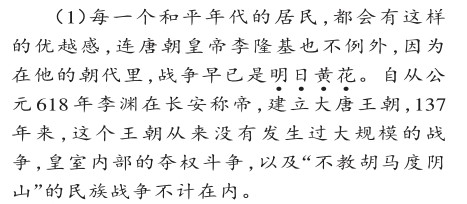 (1)每一个和平年代的居民,都会有这样
的优越感,连唐朝皇帝李隆基也不例外,因为
在他的朝代里,战争早已是明日黄花。自从公
元618年李渊在长安称帝,建立大唐王朝,137
年来,这个王朝从来没有发生过大规模的战
争,皇室内部的夺权斗争,以及“不教胡马度阴
山”的民族战争不计在内。